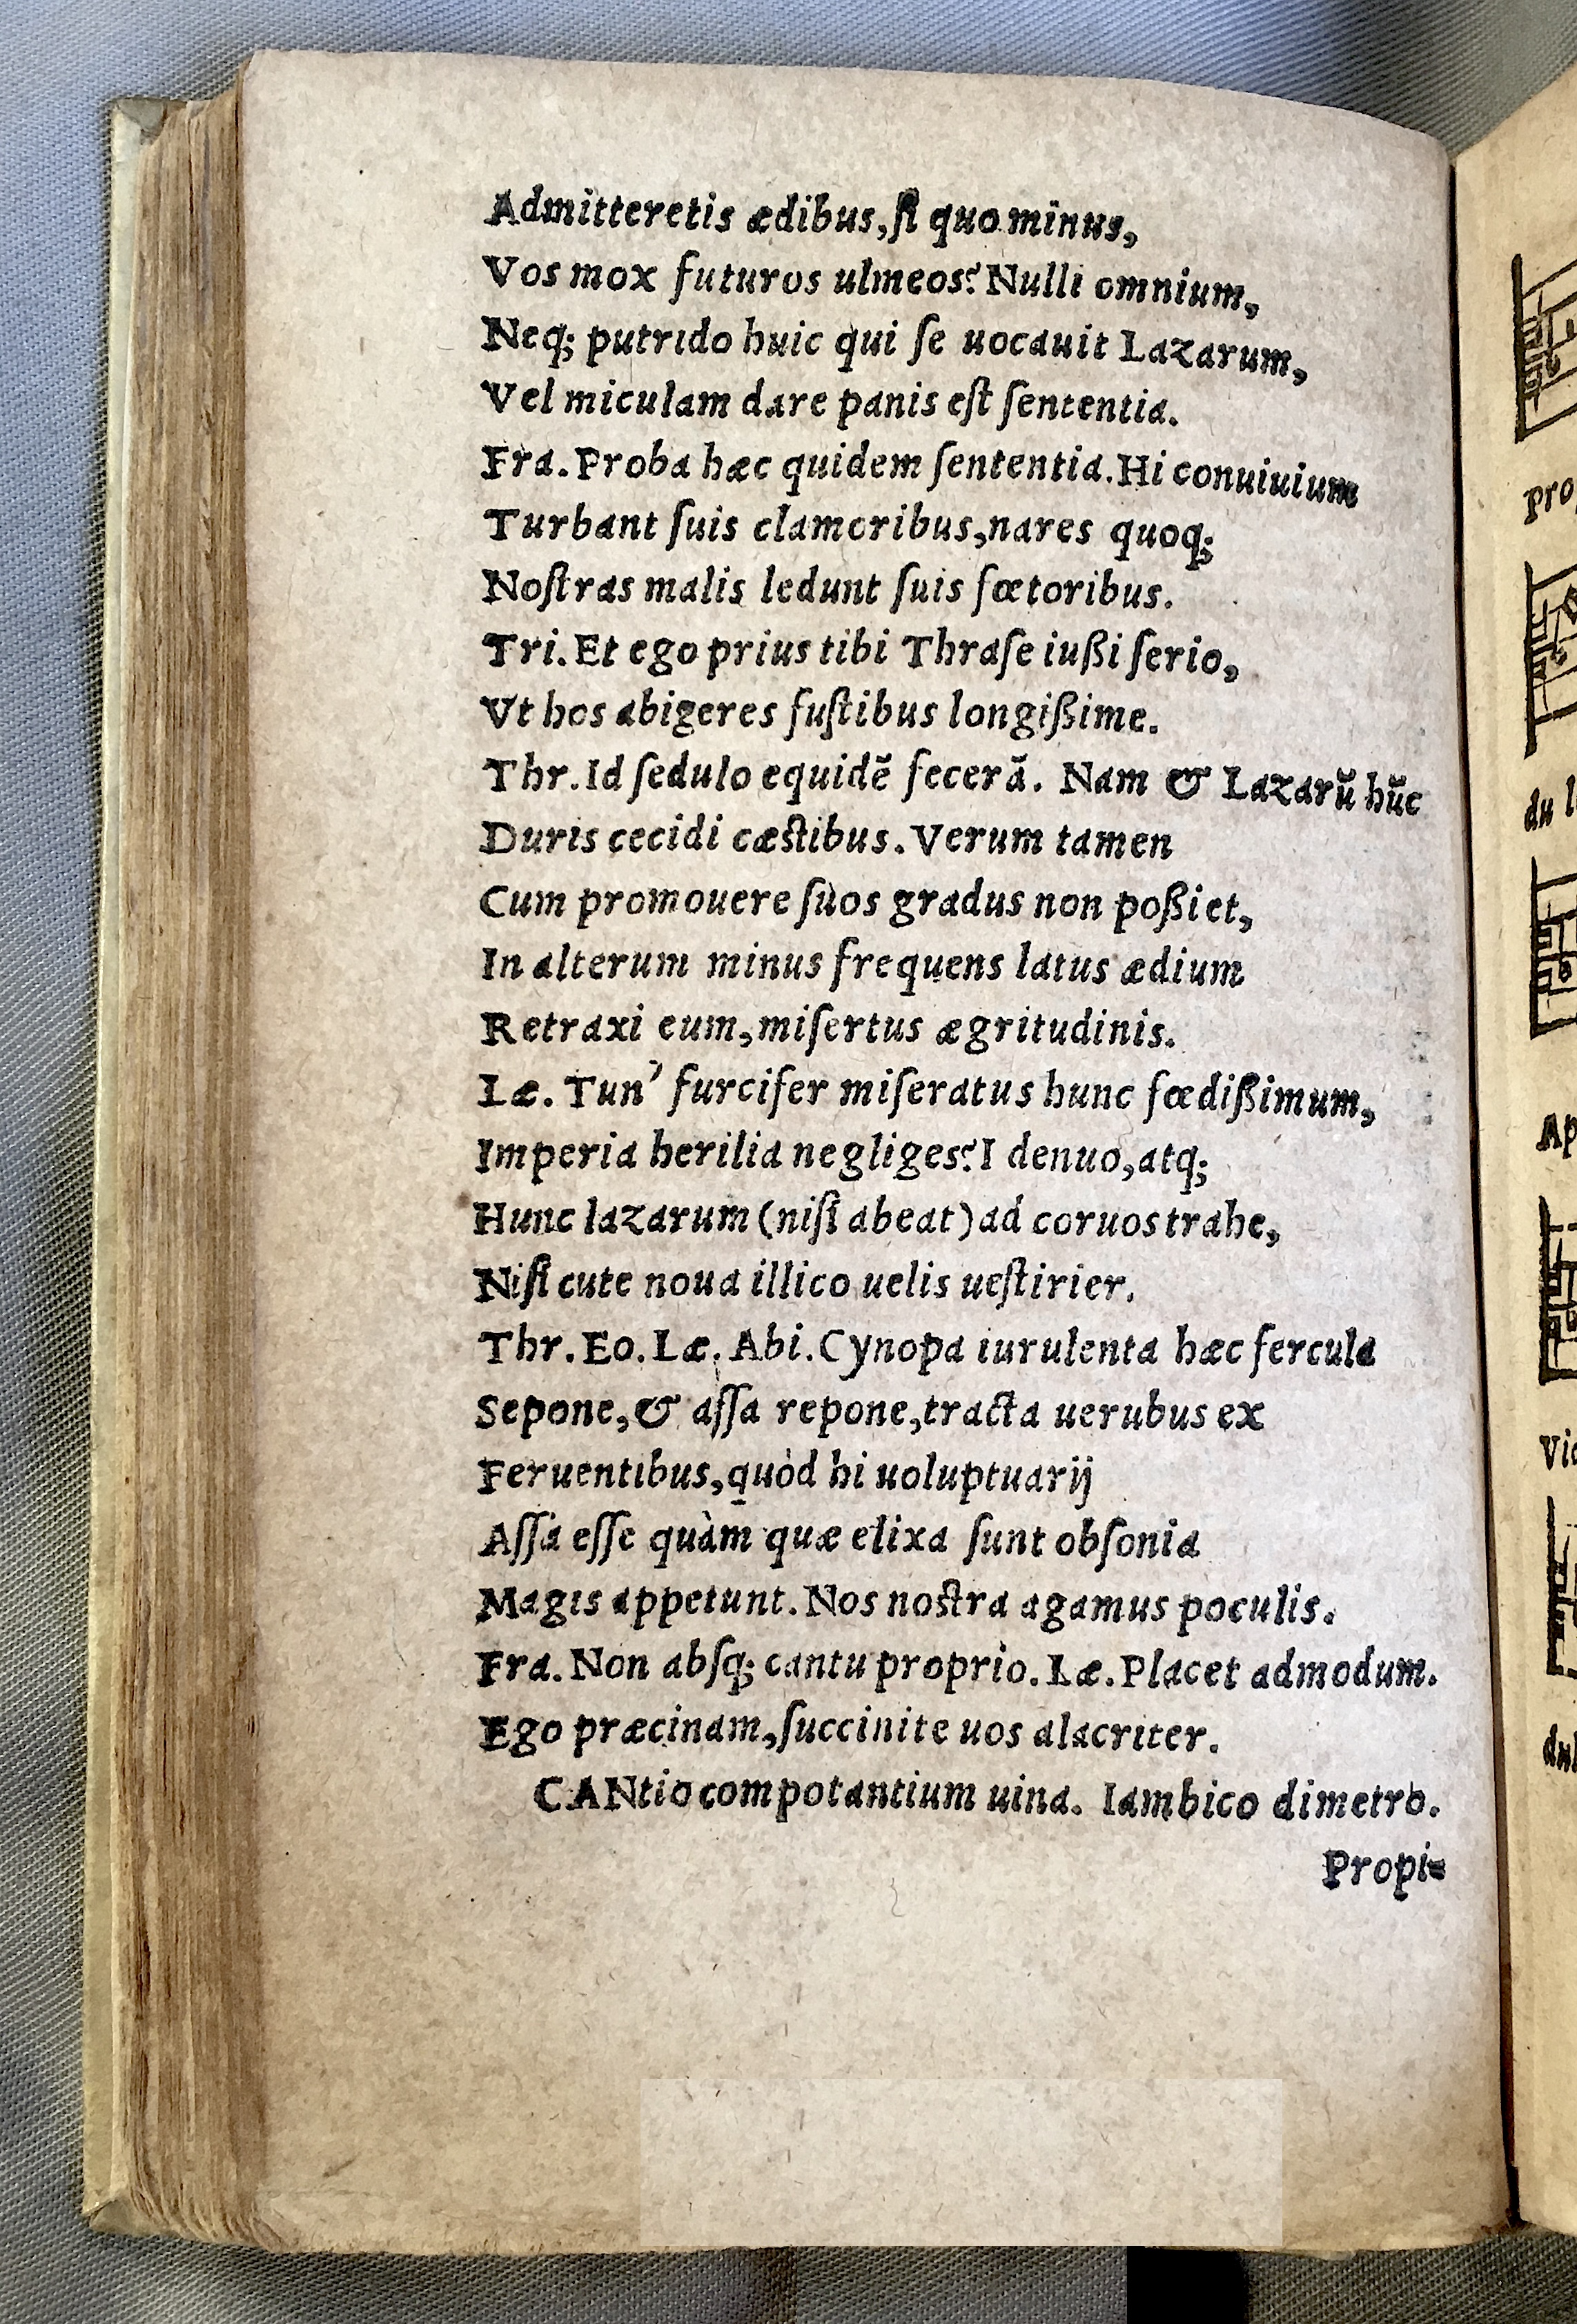 Admitteretis ædibus, ſi quo minus,
Vos mox futuros ulmeos? Nulli omnium,
Neq; putrido huic qui ſe uocauit Lazarum,
Vel miculam dare panis eſt ſententia.
Fra. Proba hæc quidem ſententia. Hi conuiuium
Turbant ſuis clamoribus, nares quoq;
Noſtras malis ledunt ſuis fœtoribus.
Tri. Et ego prius tibi Thraſe iußi ſerio,
Vt hos abigeres fuſtibus longißime.
Thr. Id ſedulo equidẽ fecerã. Nam & Lazarũ hũc
Duris cecidi cæſtibus. Verum tamen
Cum promouere ſuos gradus non poßiet,
In alterum minus frequens latus ædium
Retraxi eum, miſertus ægritudinis.
Læ. Tun' furcifer miſeratus hunc fœdißimum,
Imperia herilia negliges? I denuo, atq;
Hunc lazarum (niſi abeat) ad coruos trahe,
Niſi cute noua illico uelis ueſtirier.
Thr. Eo. Læ. Abi. Cynopa iurulenta hæc fercula
Sepone, & aſſa repone, tracta uerubus ex
Feruentibus, quòd hi uoluptuarij
Aſſa eſſe quàm quæ elixa ſunt obſonia
Magis appetunt. Nos noſtra agamus poculis.
Fra. Non abſq; cantu proprio. Læ. Placet admodum.
Ego præcinam, ſuccinite uos alacriter.
CANtio compotantium uina. Iambico dimetro.
Propi=
du l
Ap